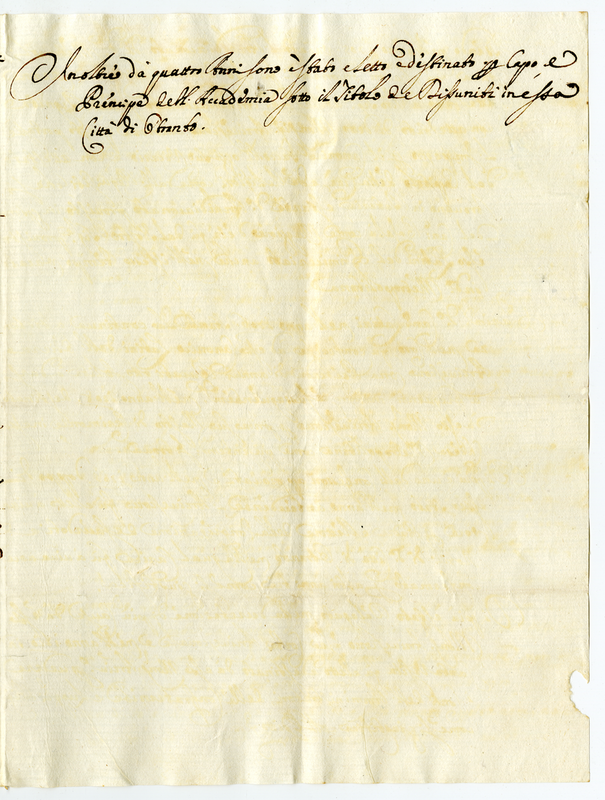 Inoltre da quattro Anni sono è stato eletto, e destinato p Capo, e
Principe dell'Accademia sotto il Titolo de Disuniti in essa
Città di Otranto.